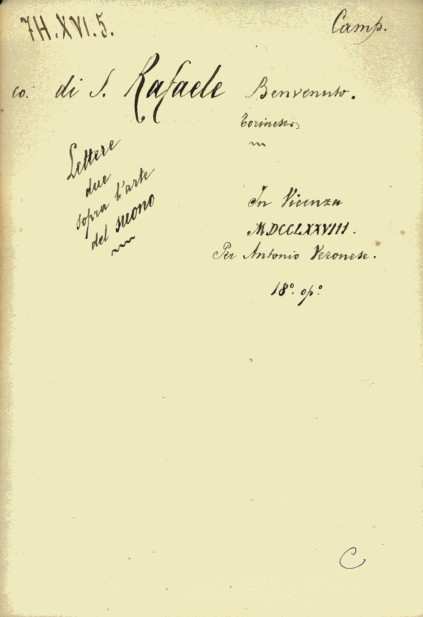 7H.XVI.5.
Camp.
co: di S. Rafaele Benvenuto.
Torinese
Lettere
due
sopra l'arte
del suono
In Vicenza
MDCCLXXVIII.
Per Antonio Veronese.
18º. opº
C